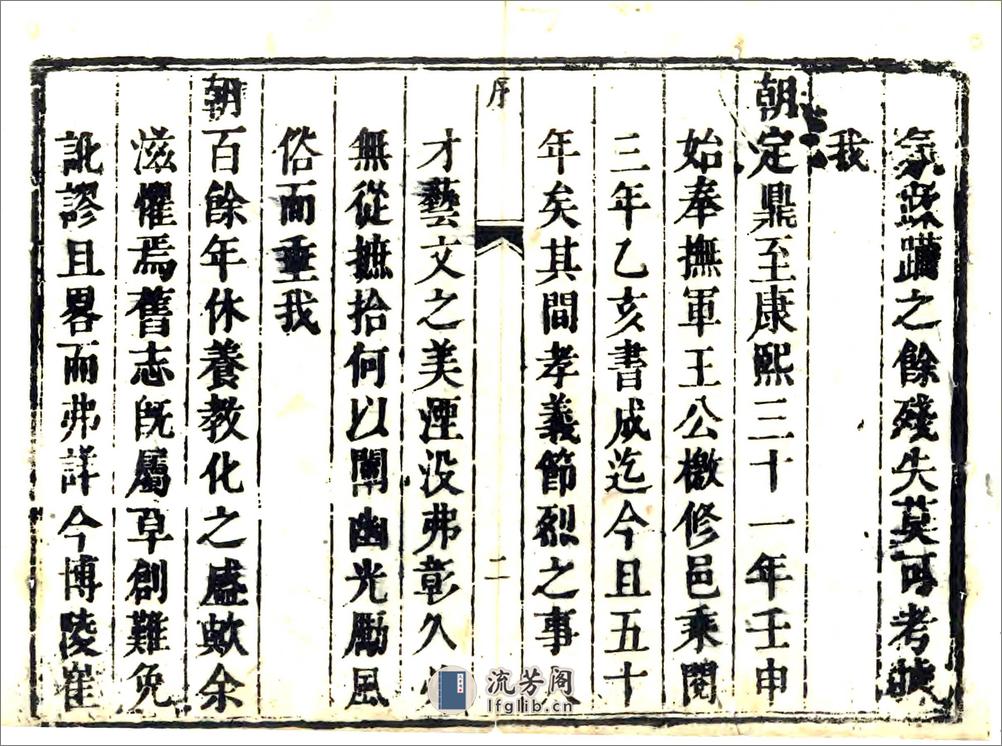 氛蹂躪之餘殘失莫可考據
我
朝定鼎至康熙三十一年壬申
始奉撫軍王公檄修邑乘閱
三年乙亥書成迄今且五十
年矣其間孝義節烈之事人
序
二
才藝文之美湮沒弗彰久
無從摭拾何以闡幽光勵風
俗而垂我
朝百餘年休養教化之盛歟余
滋懼焉舊志旣屬草創難免
訛謬且畧而弗詳今博陵崔
流芳阁
lfglib.cn